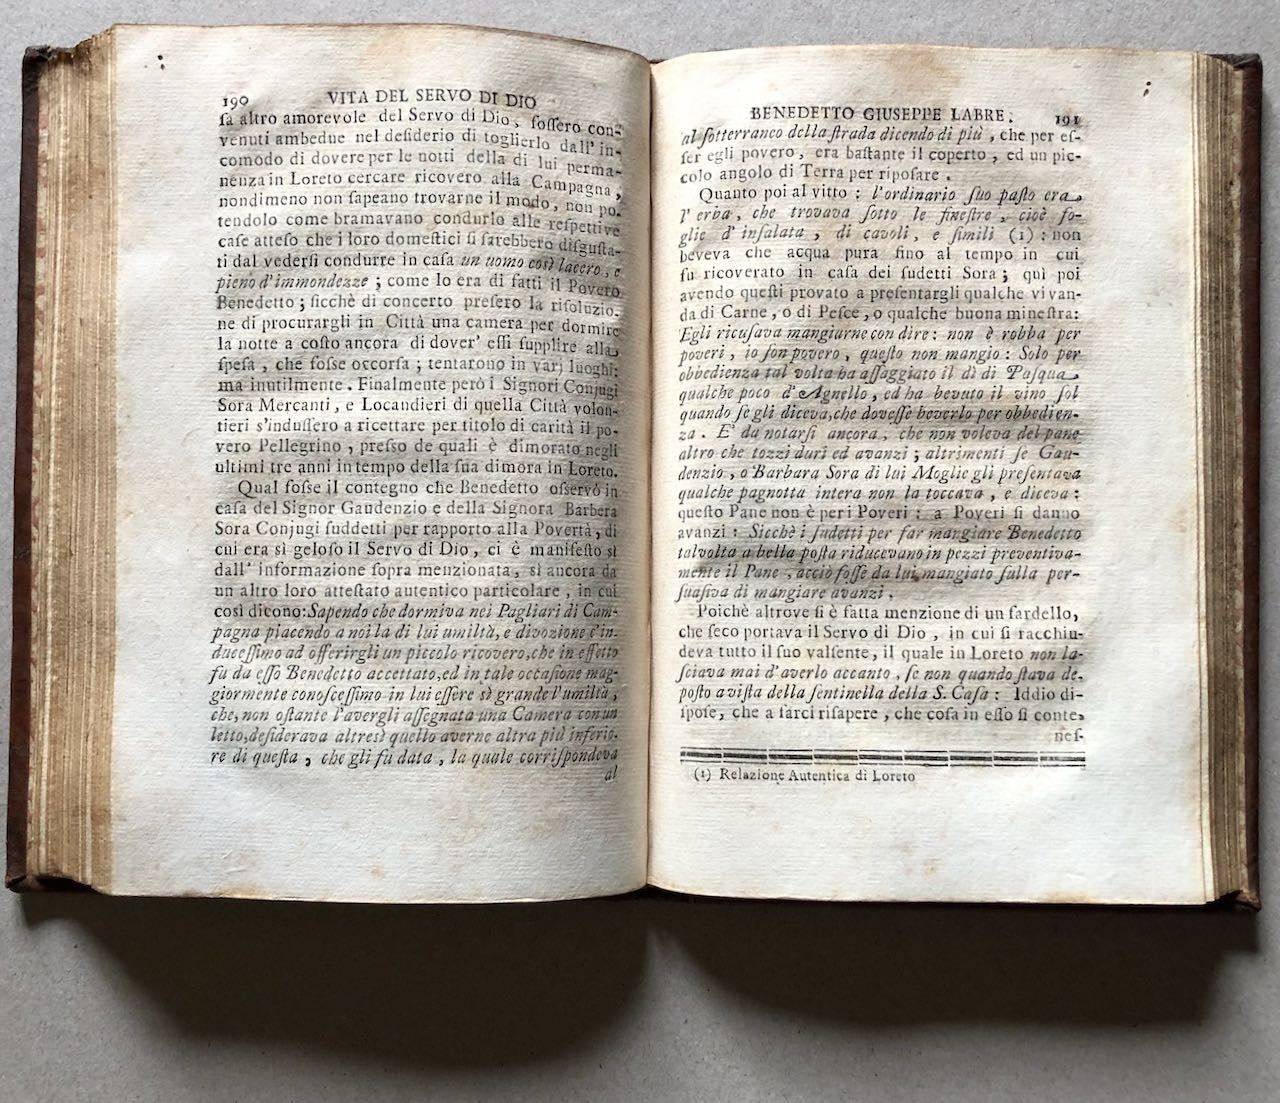 190 VITA DEL SERVO DI DIO
ſa altro amorevole del Servo di Dio, foſſero con-
venuti ambedue nel deſiderio di toglierlo dall' in-
comodo di dovere per le notti della di lui perma-
nenza in Loreto cercare ricovero alla Campagna,
nondimeno non ſapeano trovarne il modo, non po-
tendolo come bramavano condurlo alle reſpettive
caſe atteſo che i loro domeſtici ſi ſarebbero diſguſta-
ti dal vederſi condurre in caſa un uomo così lacero, e
pieno d'immondezze; come lo era di fatti il Povero
Benedetto; ſicchè di concerto preſero la riſoluzio-
ne di procurargli in Città una camera per dormire
la notte a coſto ancora di dover' eſſi ſupplire alla
ſpeſa, che foſſe occorſa; tentarono in varj luoghi:
ma inutilmente. Finalmente però i Signori Conjugi
Sora Mercanti, e Locandieri di quella Città volon-
tieri s'induſſero a ricettare per titolo di carità il po-
vero Pellegrino, preſſo de quali è dimorato negli
ultimi tre anni in tempo della ſua dimora in Loreto.
Qual foſſe il contegno che Benedetto oſſervò in
caſa del Signor Gaudenzio e della Signora Barbera
Sora Conjugi ſuddetti per rapporto alla Povertà, di
cui era sì geloſo il Servo di Dio, ci è manifeſto sì
dall' informazione ſopra menzionata, sì ancora da
un altro loro atteſtato autentico particolare, in cui
così dicono: Sapendo che dormiva nei Pagliari di Cam-
pagna piacendo a noi la di lui umiltà, e divozione c'in-
duceſſimo ad offerirgli un piccolo ricovero, che in effetto
fù da eſſo Benedetto accettato, ed in tale occaſione mag-
giormente conoſceſſimo in lui eſſere sì grande l'umiltà,
che, non oſtante l'avergli aſſegnata una Camera con un
letto, deſiderava altresì quello averne altra più inferio-
re di queſta, che gli fù data, la quale corriſpondeva
al
BENEDETTO GIUSEPPE LABRE. 191
al ſotterraneo della ſtrada dicendo di più, che per eſ-
ſer egli povero, era baſtante il coperto, ed un pic-
colo angolo di Terra per ripoſare.
Quanto poi al vitto: l'ordinario ſuo paſto era
l' erba, che trovava ſotto le fineſtre, cioè fo-
glie d' inſalata, di cavoli, e ſimili (1): non
beveva che acqua pura fino al tempo in cui
fu ricoverato in caſa dei ſudetti Sora; quì poi
avendo queſti provato a preſentargli qualche vivan-
da di Carne, o di Peſce, o qualche buona mineſtra:
Egli ricuſava mangiarne con dire: non è robba per
poveri, io ſon povero, queſto non mangio: Solo per
obbedienza tal volta ha aſſaggiato il dì di Paſqua
qualche poco d' Agnello, ed ha bevuto il vino ſol
quando ſe gli diceva, che doveſſe beverlo per obbedien-
za. E' da notarſi ancora, che non voleva del pane
altro che tozzi duri ed avanzi; altrimenti ſe Gau-
denzio, o Barbara Sora di lui Moglie gli preſentava
qualche pagnotta intera non la toccava, e diceva:
queſto Pane non è per i Poveri: a Poveri ſi danno
avanzi: Sicchè i ſudetti per far mangiare Benedetto
talvolta a bella poſta riducevano in pezzi preventiva-
mente il Pane, acciò foſſe da lui mangiato ſulla per-
ſuaſiva di mangiare avanzi.
Poichè altrove ſi è fatta menzione di un fardello,
che ſeco portava il Servo di Dio, in cui ſi racchiu-
deva tutto il ſuo valſente, il quale in Loreto non la-
ſciava mai d'averlo accanto, ſe non quando ſtava de-
poſto a viſta della ſentinella della S. Caſa: Iddio di-
ſpoſe, che a farci riſapere, che coſa in eſſo ſi conte-
neſ-
(1) Relazione Autentica di Loreto